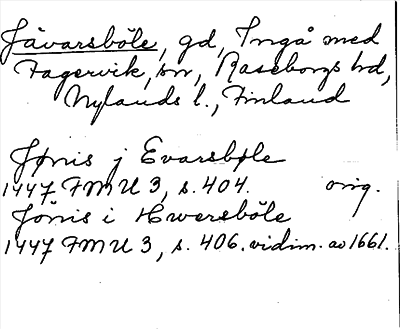 Jävarsböle, gd, Ingå med
Fagervik, sn, Raseborgs hd,
Nylands l., Finland
Jønis j Evarsbøle
1447 FMU 3, s. 404. orig.
Jönis i Hwersböle
1447 FMU 3, s. 406. vidim. av 1661.